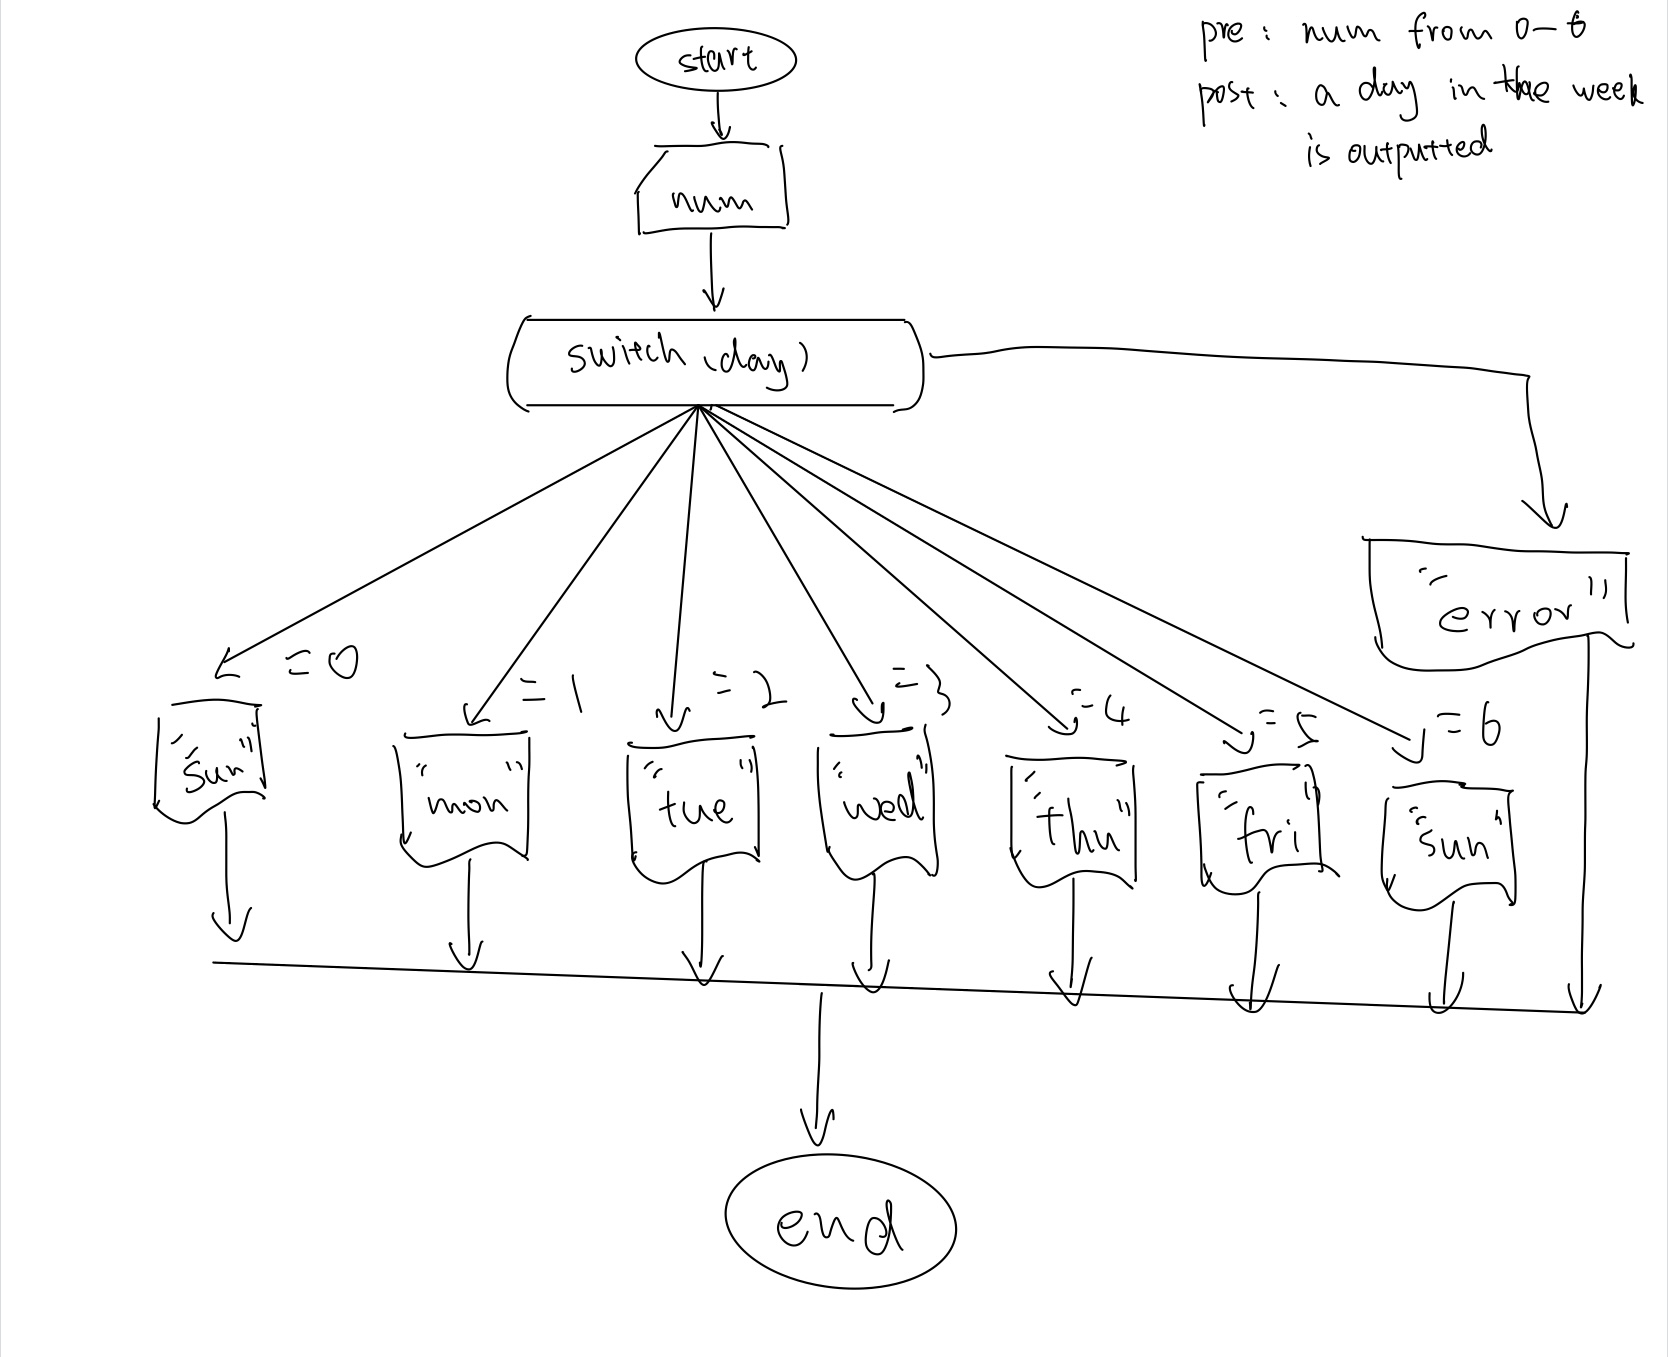 pre : num from 0-6
post : a day in the week
is outputted
start
num
switch (day)
"error"
=0
=1
=2
=3
=4
=5
=6
"sun"
"mon"
"tue"
"wed"
"thu"
"fri"
"sun"
end